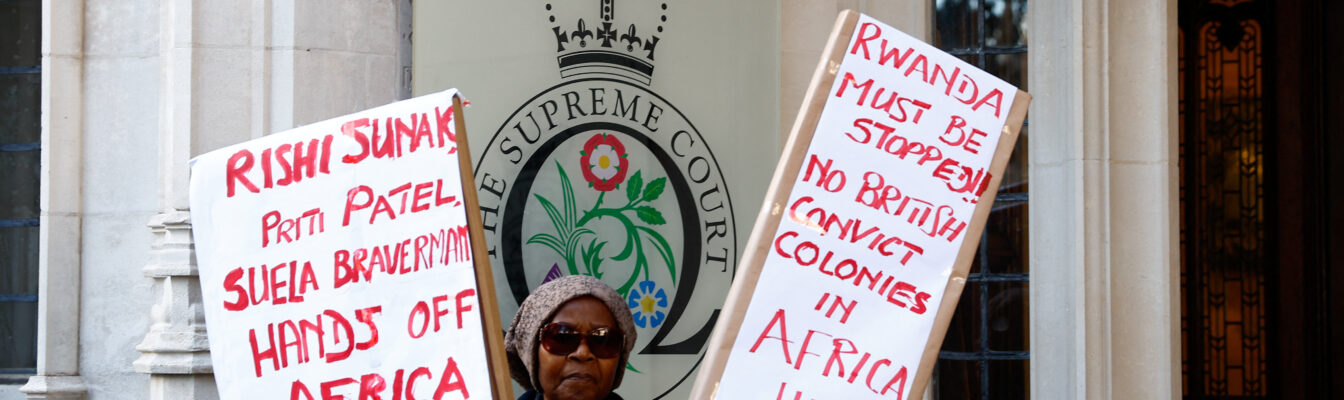 RISHI SUNAK,
PRITI PATEL,
SUELA BRAVERMAN
HANDS OFF
AFRICA
THE SUPREME COURT
RWANDA
MUST BE
STOPPED!!!
NO BRITISH
CONVICT
COLONIES
IN
AFRICA